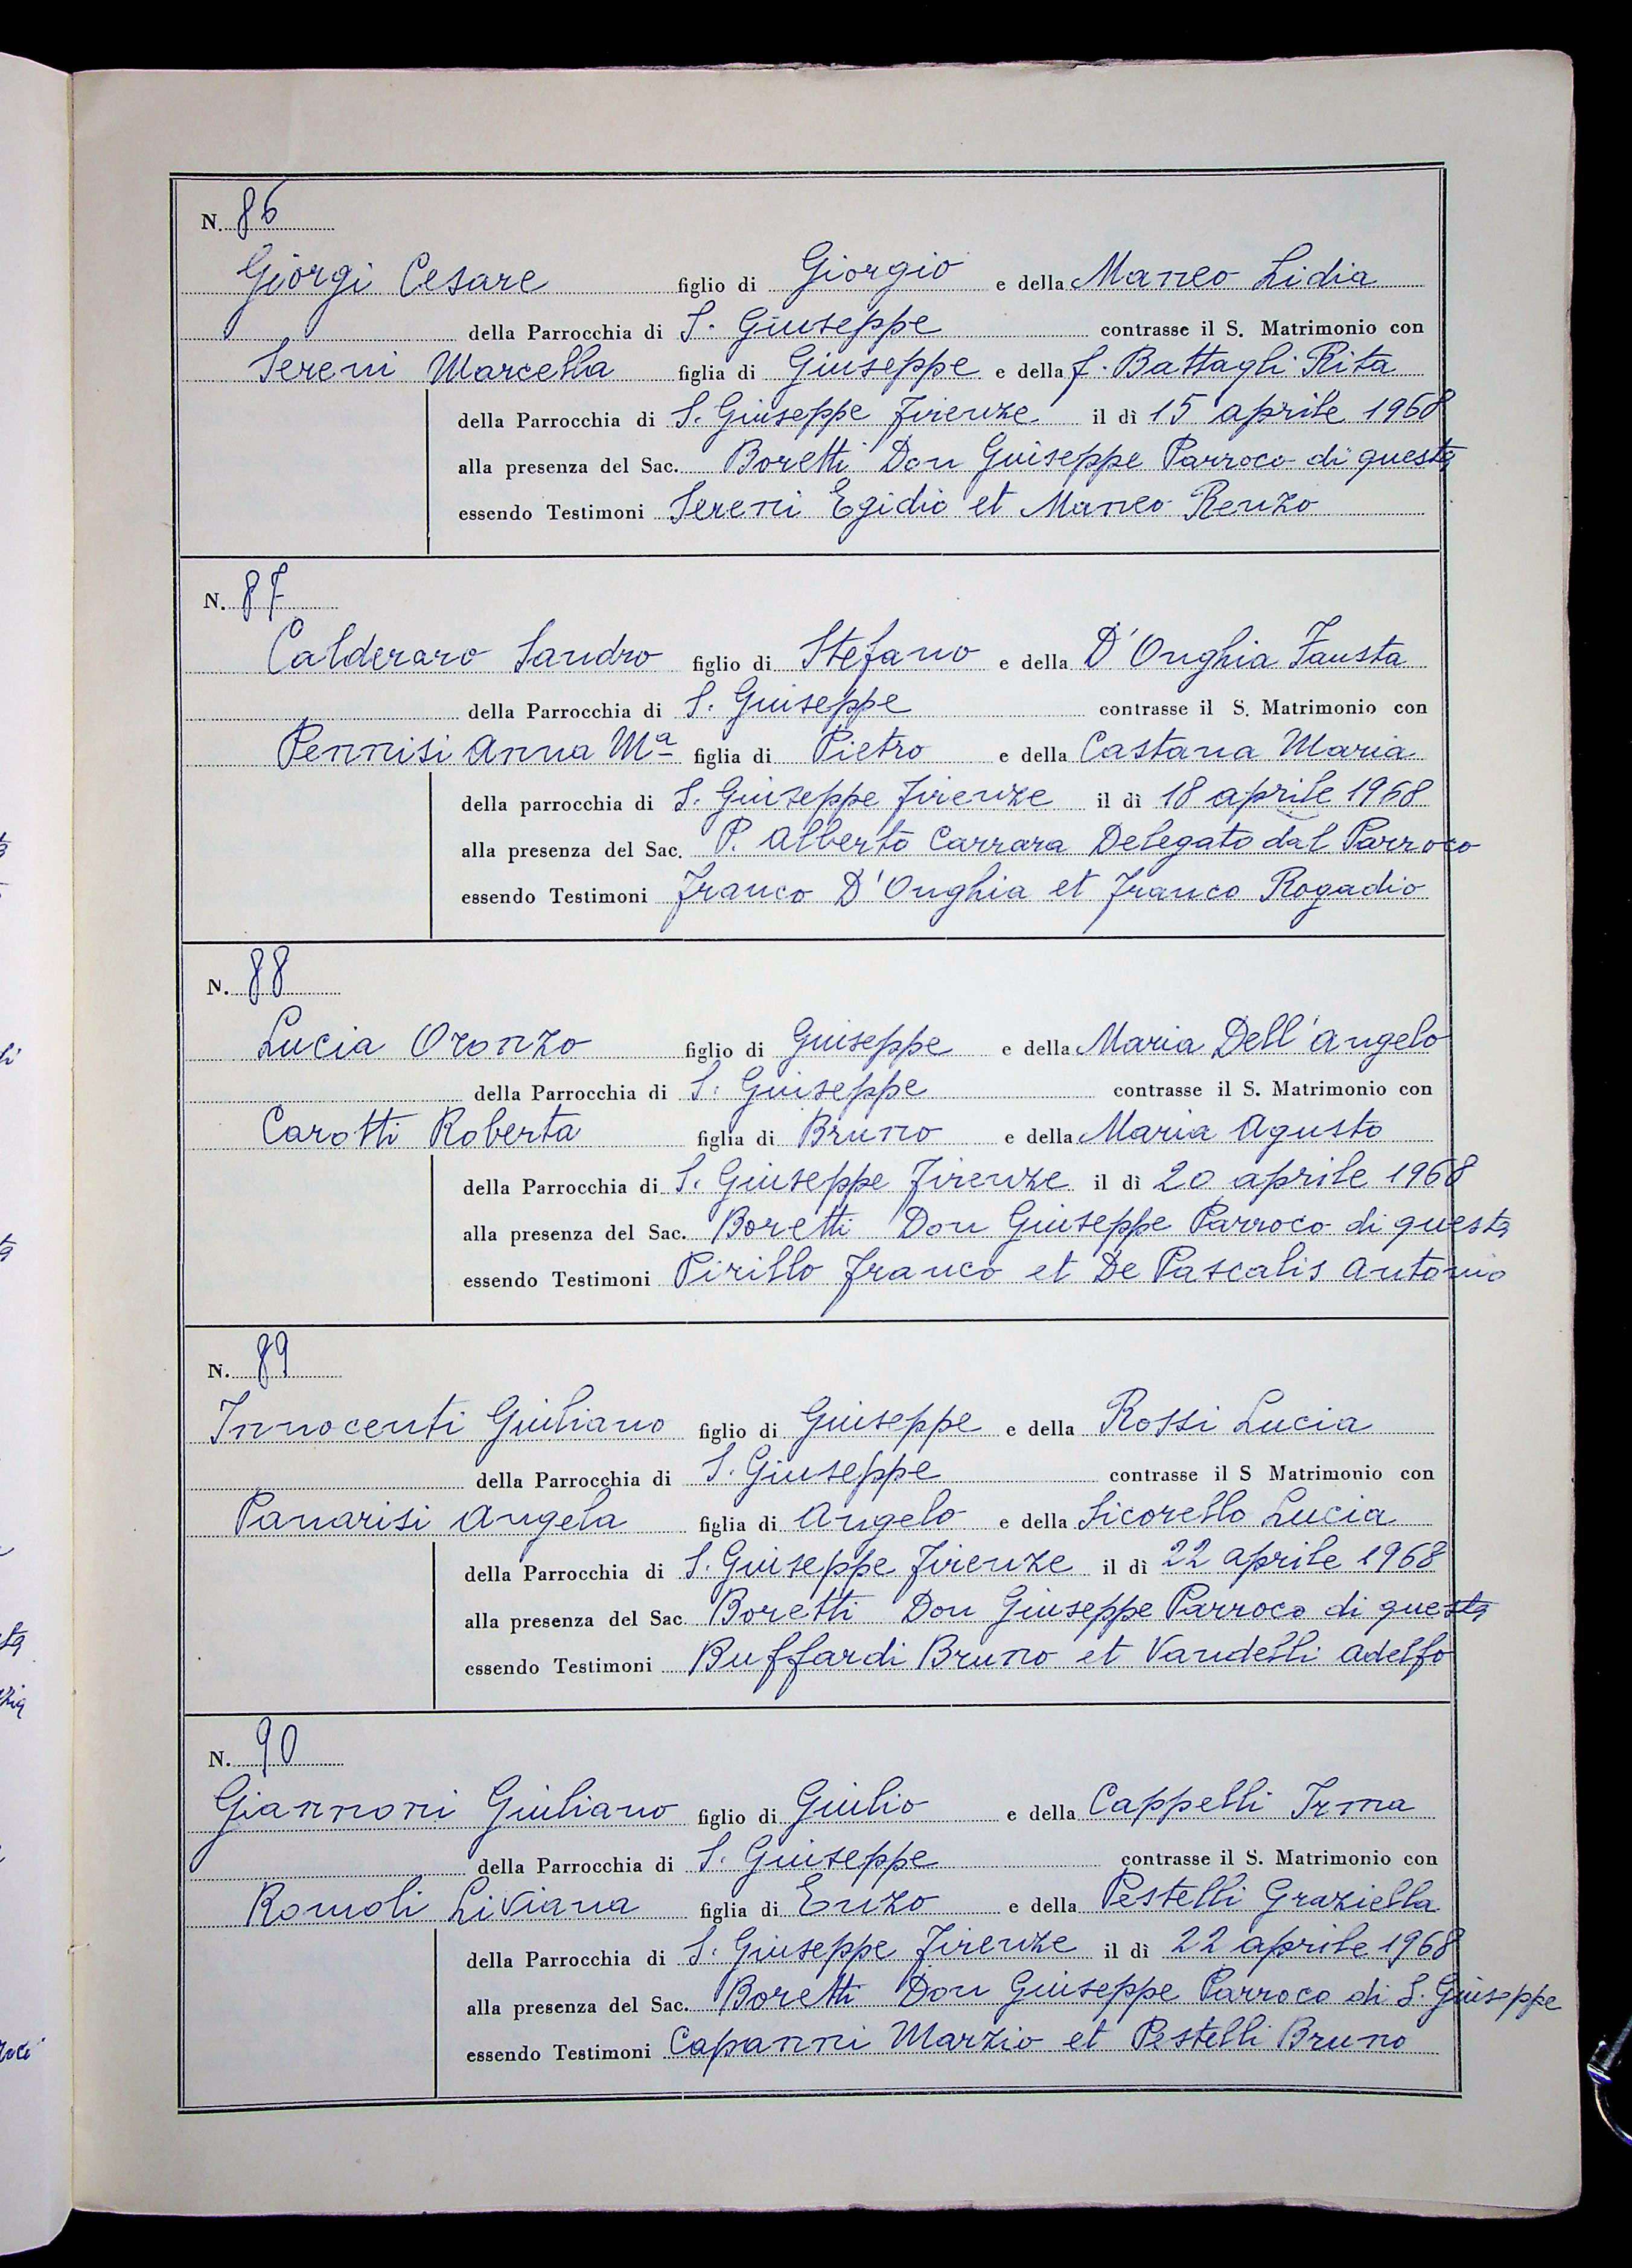 N. 86
Giorgi Cesare figlio di Giorgio e della Maneo Lidia
della Parrocchia di S. Giuseppe contrasse il S. Matrimonio con
Sereni Marcella figlia di Giuseppe e della f. Battagli Rita
della Parrocchia di S. Giuseppe Firenze il dì 15 aprile 1968
alla presenza del Sac. Boretti Don Giuseppe Parroco di questa
essendo Testimoni Sereni Egidio et Maneo Renzo
N. 87
Calderaro Sandro figlio di Stefano e della D'Onghia Fausta
della Parrocchia di S. Giuseppe contrasse il S. Matrimonio con
Pennisi Anna Mª figlia di Pietro e della Castana Maria
della parrocchia di S. Giuseppe Firenze il dì 18 aprile 1968
alla presenza del Sac. P. Alberto Carrara Delegato dal Parroco
essendo Testimoni Franco D'Onghia et Franco Rogadio
N. 88
Lucia Oronzo figlio di Giuseppe e della Maria Dell'Angelo
della Parrocchia di S. Giuseppe contrasse il S. Matrimonio con
Carotti Roberta figlia di Bruno e della Maria Agusto
della Parrocchia di S. Giuseppe Firenze il dì 20 aprile 1968
alla presenza del Sac. Boretti Don Giuseppe Parroco di questa
essendo Testimoni Pirillo Franco et De Pascalis Antonio
N. 89
Innocenti Giuliano figlio di Giuseppe e della Rossi Lucia
della Parrocchia di S. Giuseppe contrasse il S Matrimonio con
Panarisi Angela figlia di Angelo e della Sicorello Lucia
della Parrocchia di S. Giuseppe Firenze il dì 22 aprile 1968
alla presenza del Sac. Boretti Don Giuseppe Parroco di questa
essendo Testimoni Buffardi Bruno et Vandelli Adelfo
N. 90
Giannoni Giuliano figlio di Giulio e della Cappelli Irma
della Parrocchia di S. Giuseppe contrasse il S. Matrimonio con
Romoli Liviana figlia di Enzo e della Pestelli Graziella
della Parrocchia di S. Giuseppe Firenze il dì 22 aprile 1968
alla presenza del Sac. Boretti Don Giuseppe Parroco di S. Giuseppe
essendo Testimoni Capanni Marzio et Pestelli Bruno